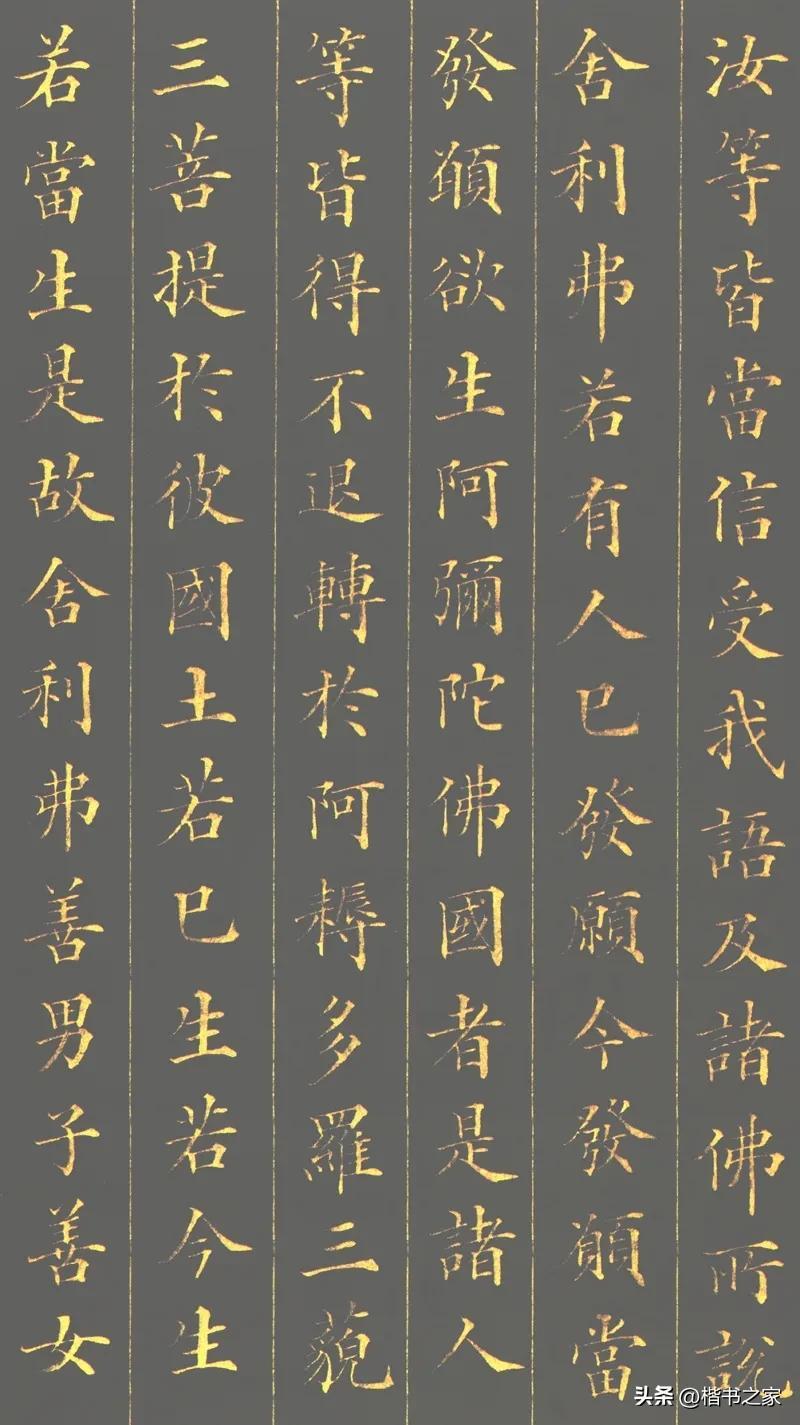 汝等皆當信受我語及諸佛所說
舍利弗若有人已發願今發願當
發願欲生阿彌陀佛國者是諸人
等皆得不退轉於阿耨多羅三藐
三菩提於彼國土若已生若今生
若當生是故舍利弗善男子善女
头条 @楷书之家